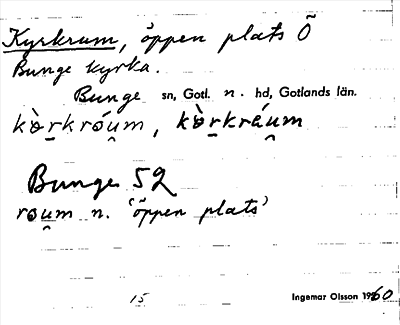 Kyrkrum, öppen plats Ö
Bunge kyrka.
Bunge sn, Gotl. n. hd, Gotlands län.
kò̱rkróu̯m, kò̱rkráu̯m
Bunge 52
rou̯m n. 'öppen plats'
15 Ingemar Olsson 1960